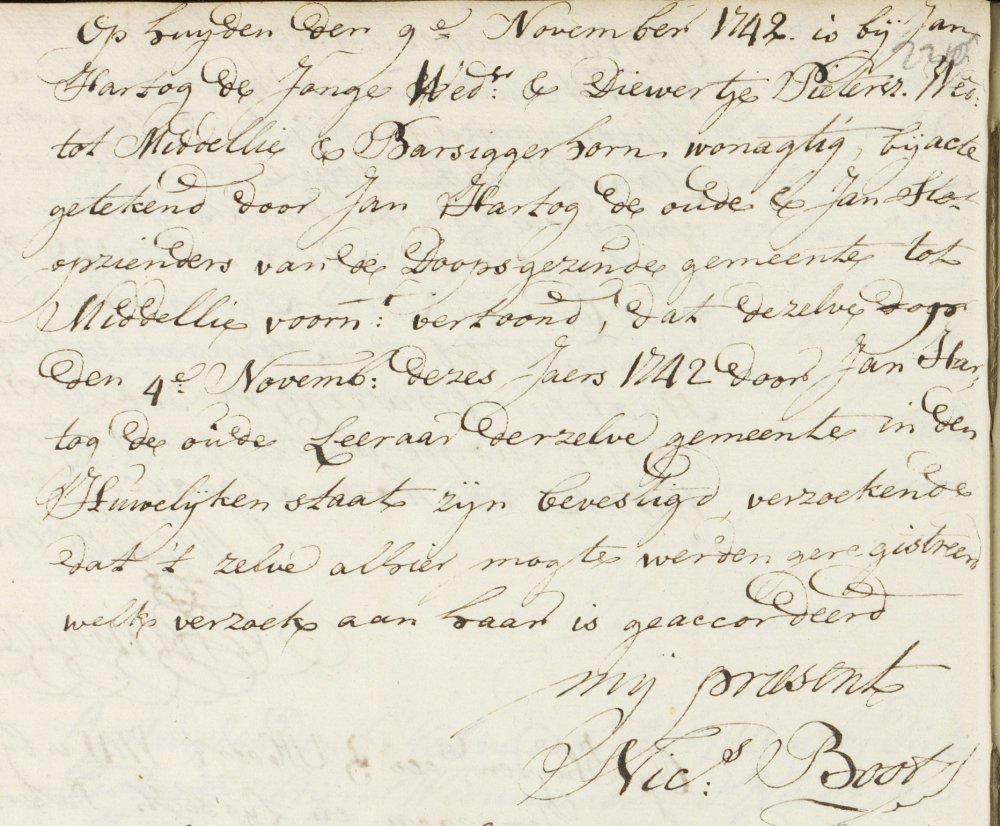 Op huijden den 9e November 1742. is bij Jan
Hartog de Jonge Wedr: & Diewertje Pietersz. Wed:
tot Middellie & Barsiggerhorn wonagtig, bij acte
getekend door Jan Hartog de oude & Jan Slot
opzienders van de Doopsgezinde gemeente tot
Middellie voornt: vertoond, dat dezelve op
den 4e Novemb: dezes Jaers 1742 door Jan Har,
tog de oude Leeraar derzelve gemeente in den
Huwelijken staat zijn bevestigd, verzoekende
dat 't zelve alhier mogte werden geregistreerd
welk verzoek aan haar is geaccordeerd
mij præsent
Nics: Boot